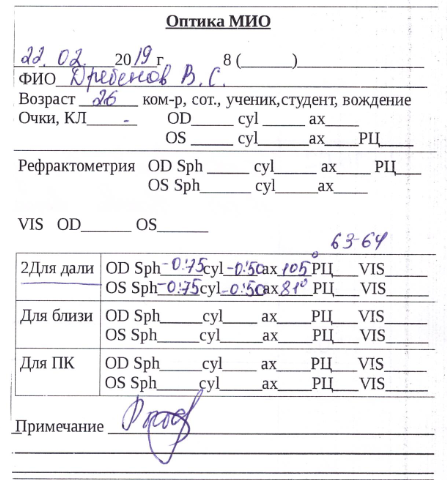 Оптика МИО
22.02.2019 г 8 (______)
ФИО Дребенов В.С.
Возраст 26 ком-р, сот., ученик,студент, вождение
Очки, КЛ - OD_____ cyl _____ ax____
OS _____ cyl______ax____РЦ___
Рефрактометрия OD Sph _____ cyl_____ ax____ РЦ___
OS Sph______ cyl_____ax____
VIS OD______ OS______
63-64
2Для дали OD Sph -0.75 cyl -0.50 ax 105° РЦ___VIS_____
OS Sph -0.75 cyl -0.50 ax 81° РЦ___VIS_____
Для близи OD Sph_____cyl____ ax____РЦ___VIS_____
OS Sph_____cyl____ ax____РЦ___VIS_____
Для ПК OD Sph_____cyl____ ax____РЦ___VIS_____
OS Sph_____cyl____ ax____РЦ___VIS_____
Примечание